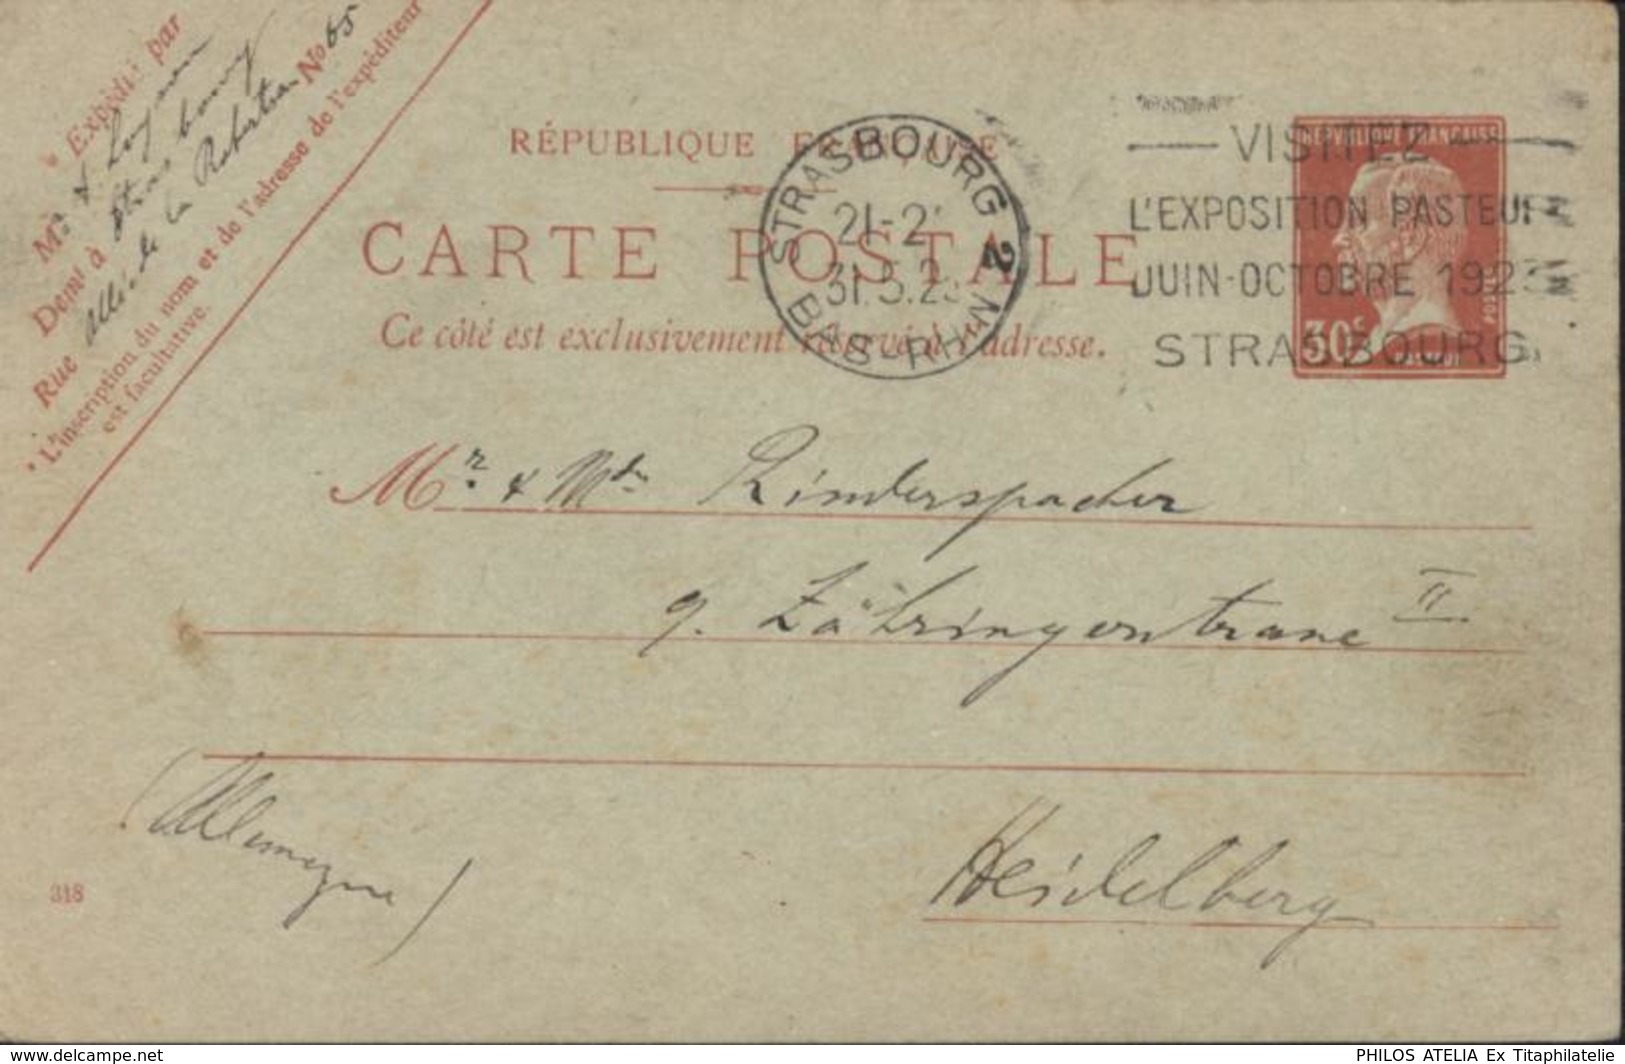 * Expédié par
Mr. A.
Demt à Strasbourg
Rue allée de la Robertsau No 65
* L'inscription du nom et de l'adresse de l'expéditeur
est facultative.
RÉPUBLIQUE FRANÇAISE
CARTE POSTALE
Ce côté est exclusivement réservé à l'adresse.
STRASBOURG 2
21-2
31.5.23
BAS-RHIN
VISITEZ
L'EXPOSITION PASTEUR
JUIN-OCTOBRE 1923
STRASBOURG.
RÉPUBLIQUE FRANÇAISE
POSTES
30c
PASTEUR
Mr. & Mde Rinderspacher
9. Zähringerstrasse II.
(Allemagne)
Heidelberg
318
www.delcampe.net
PHILOS ATELIA Ex Titaphilatelie